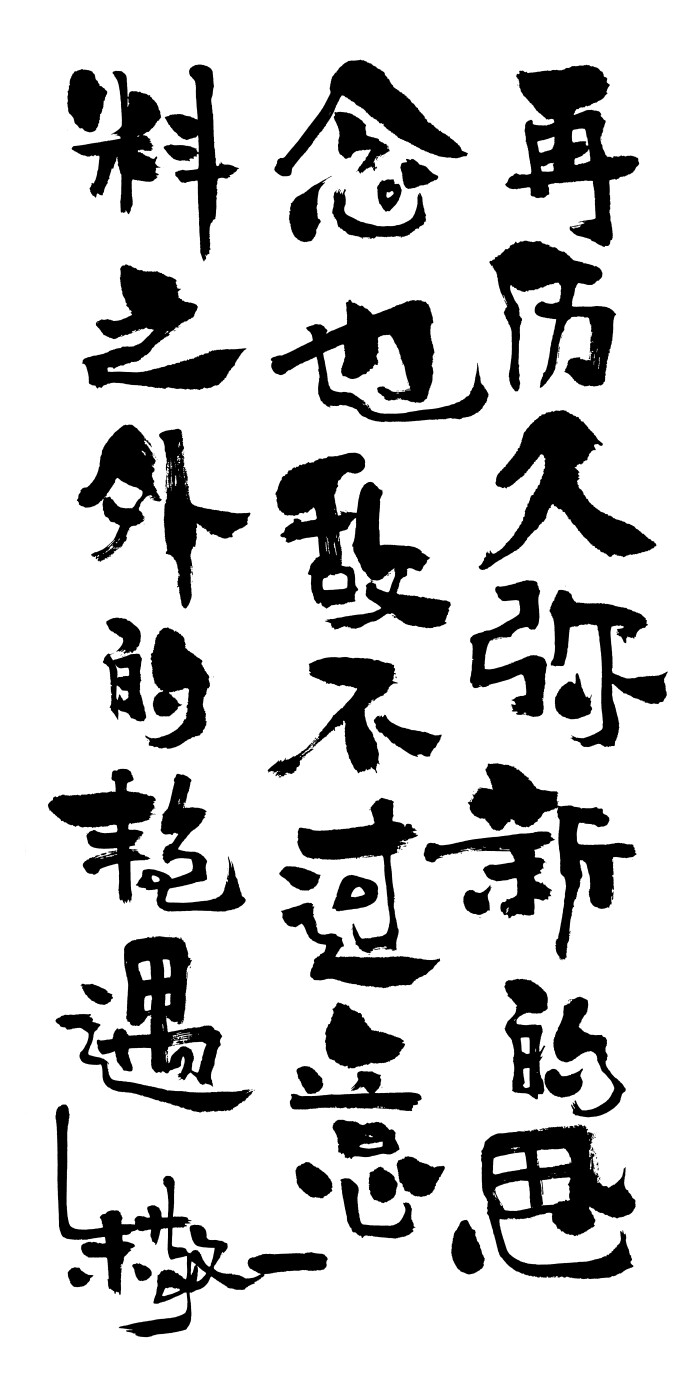 再历久弥新的思
念也敌不过意
料之外的艳遇
朱敬一